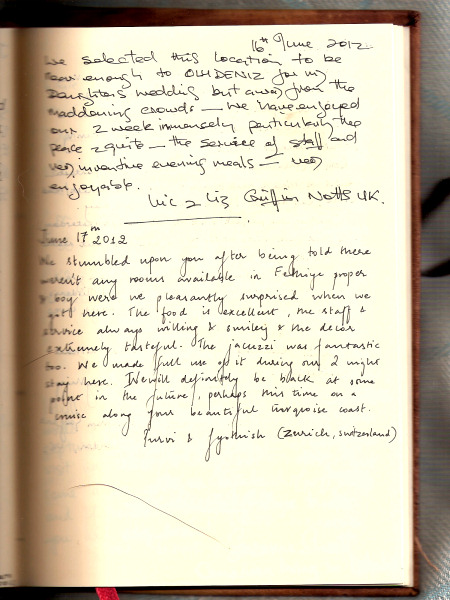 16th June 2012
We selected this location to be
near enough to OLHDENIZ for my
Daughters wedding but away from the
maddening crowds - We have enjoyed
our 2 week immensely particularly the
peace & quite - the service of staff and
very inventive evening meals - very
enjoyable.
Vic & Liz Griffin Notts UK.
June 17th 2012
We stumbled upon you after being told there
weren't any rooms available in Fethiye proper
& boy were we pleasantly surprised when we
got here. The food is excellent, the staff &
service always willing & smiley & the decor
extremely tasteful. The jacuzzi was fantastic
too. We made full use of it during our 2 night
stay here. We will definitely be back at some
point in the future, perhaps this time on a
cruise along your beautiful turquoise coast.
Purvi & Jyothish (Zurich, Switzerland)